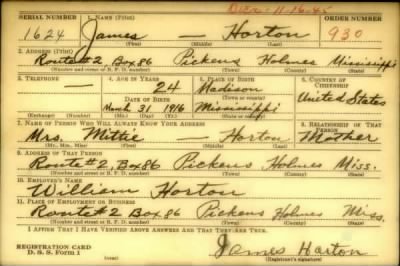 Dec. 11-16-45
SERIAL NUMBER 1. NAME (Print) ORDER NUMBER
1624 James — Horton 930
(First) (Middle) (Last)
2. ADDRESS (Print)
Route #2, Box 86 Pickens Holmes Mississippi
(Number and street or R. F. D. number) (Town) (County) (State)
3. TELEPHONE 4. AGE IN YEARS 5. PLACE OF BIRTH 6. COUNTRY OF CITIZENSHIP
— 24 Madison United States
DATE OF BIRTH (Town or county)
March 31 1916 Mississippi
(Exchange) (Number) (Mo.) (Day) (Yr.) (State or country)
7. NAME OF PERSON WHO WILL ALWAYS KNOW YOUR ADDRESS 8. RELATIONSHIP OF THAT PERSON
Mrs. Mittie — Horton Mother
(Mr., Mrs., Miss) (First) (Middle) (Last)
9. ADDRESS OF THAT PERSON
Route #2, Box 86 Pickens Holmes Miss.
(Number and street or R. F. D. number) (Town) (County) (State)
10. EMPLOYER'S NAME
William Horton
11. PLACE OF EMPLOYMENT OR BUSINESS
Route #2 Box 86 Pickens Holmes Miss.
(Number and street or R. F. D. number) (Town) (County) (State)
I AFFIRM THAT I HAVE VERIFIED ABOVE ANSWERS AND THAT THEY ARE TRUE.
REGISTRATION CARD
D. S. S. Form 1
James Horton
(Registrant's signature)